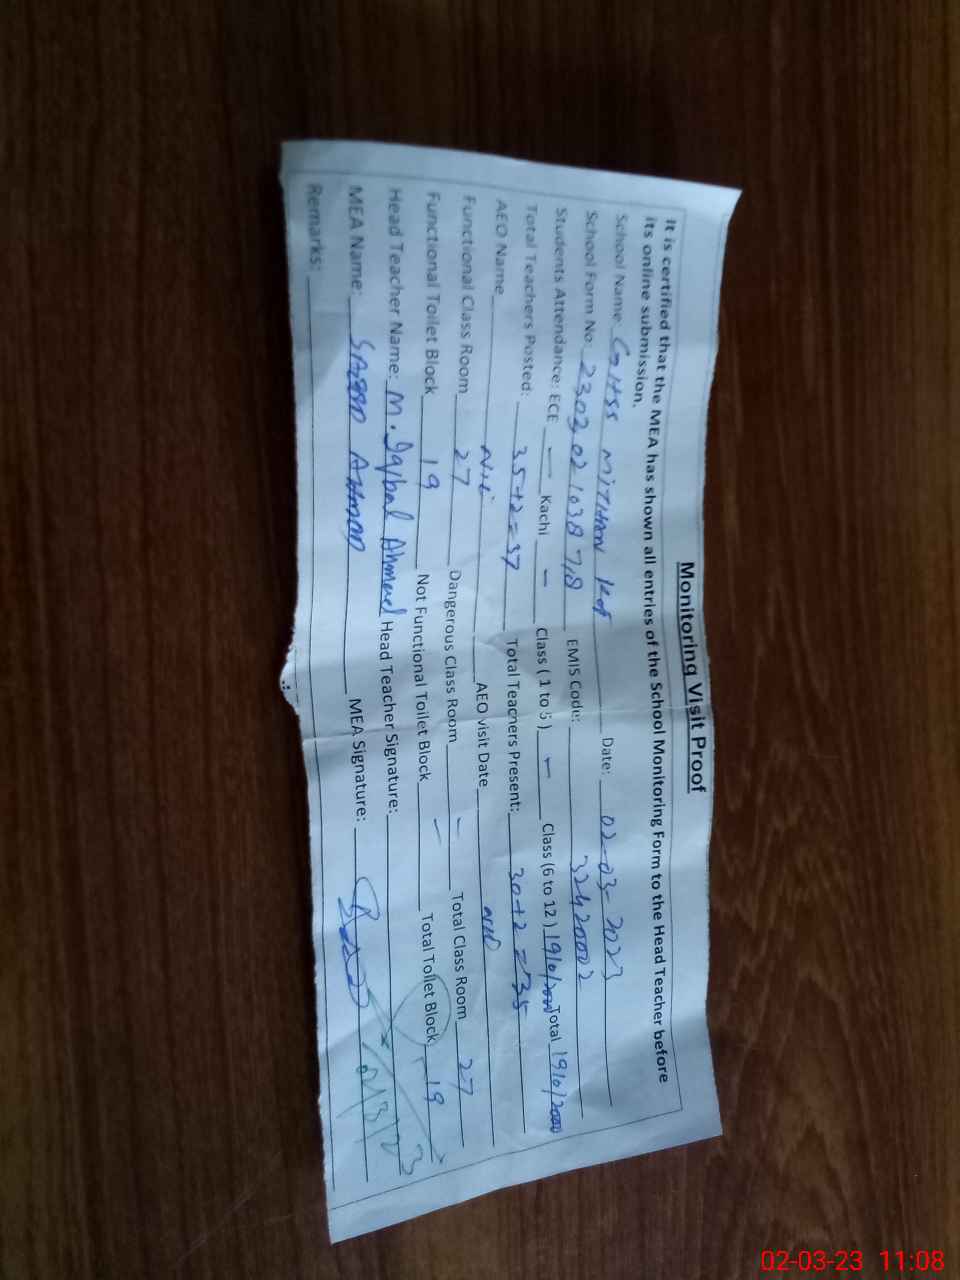 Monitoring Visit Proof
It is certified that the MEA has shown all entries of the School Monitoring Form to the Head Teacher before
its online submission.
School Name: GHSS MITHAN Kot Date: 02-03-2023
School Form No: 2303021038 7,8 EMIS Code: 32420002
Students Attendance: ECE — Kachi — Class ( 1 to 5 ) — Class (6 to 12 ) 1910/2000 Total 1910/2000
Total Teachers Posted: 35+2=37 Total Teachers Present: 30+2=35
AEO Name Nil AEO visit Date Nil
Functional Class Room 27 Dangerous Class Room — Total Class Room 27
Functional Toilet Block 19 Not Functional Toilet Block — Total Toilet Block 19
Head Teacher Name: M. Iqbal Ahmed Head Teacher Signature: 02/3/23
MEA Name: SAEED AHMAD MEA Signature:
Remarks:
02-03-23 11:08